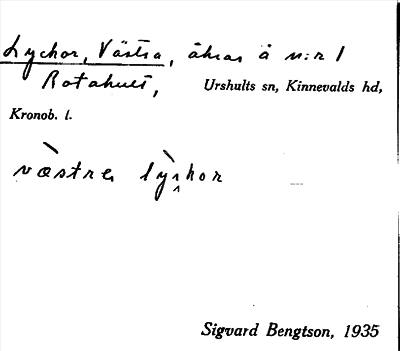 Lychor, Västra, åkrar å n:r 1
Rotahult, Urshults sn, Kinnevalds hd,
Kronob. l.
væstra
Sigvard Bengtson, 1935